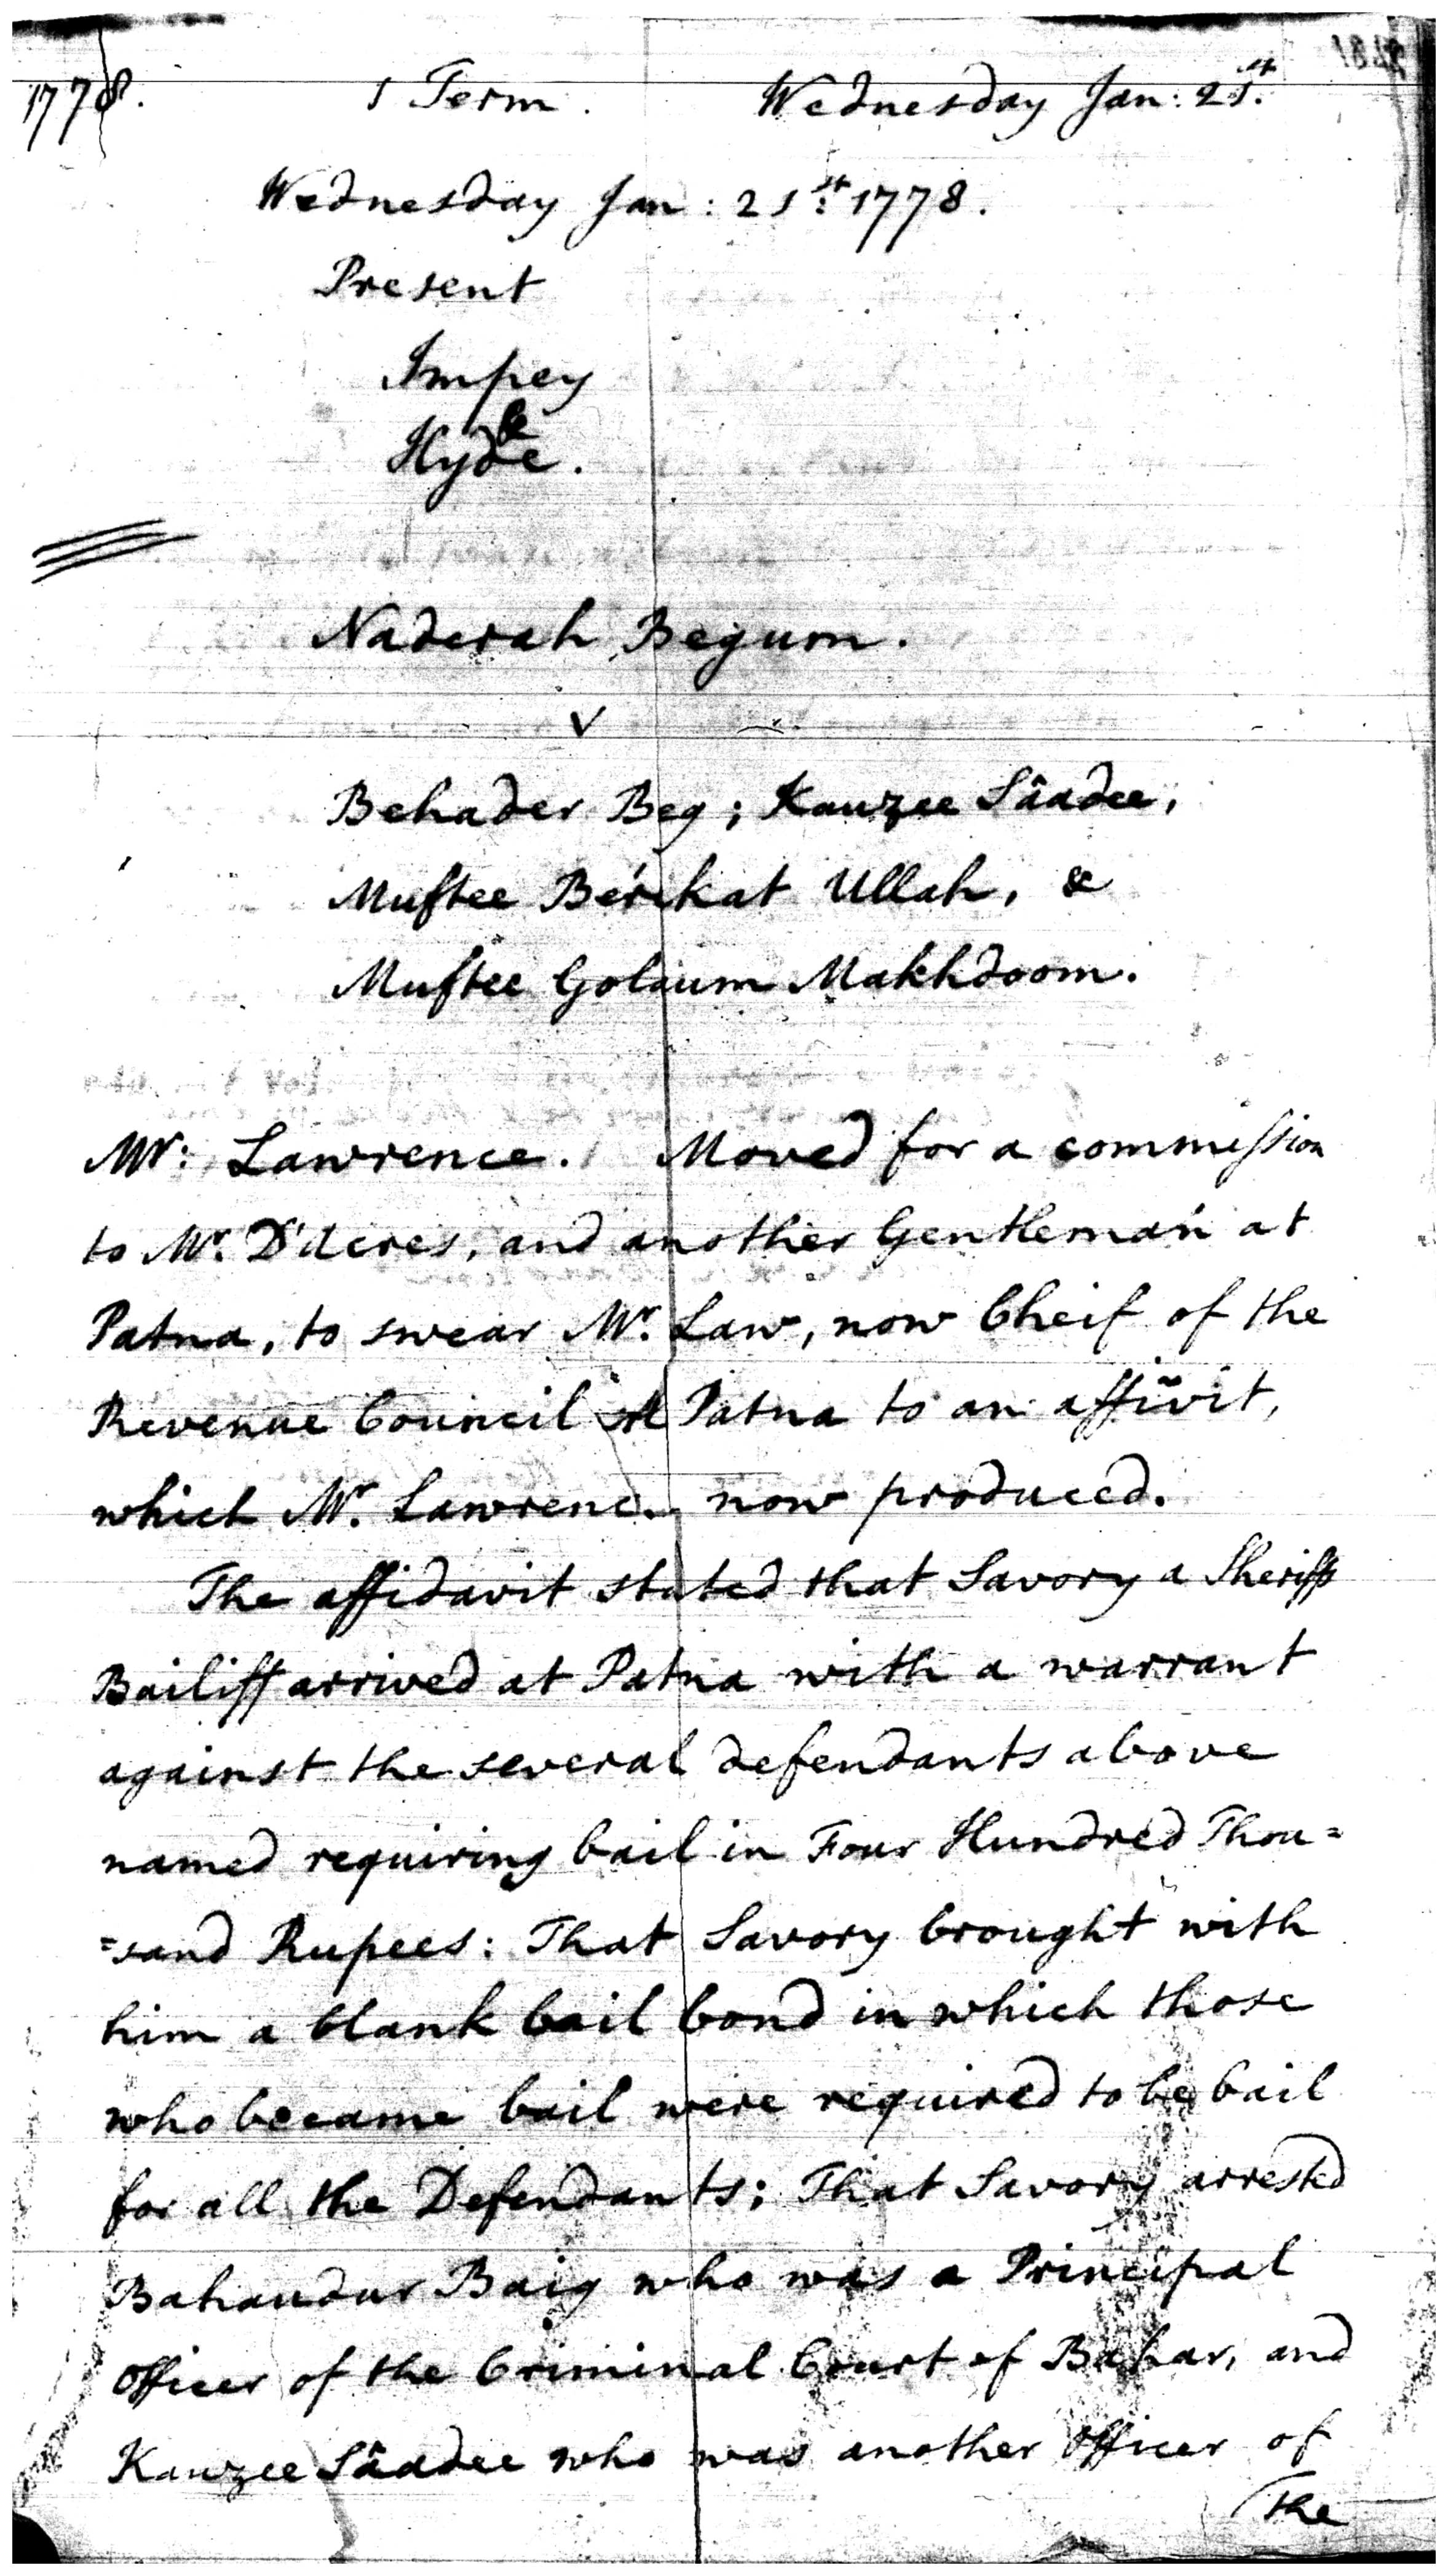 1778. 1 Term. Wednesday Jan: 21st.
Wednesday Jan: 21st: 1778.
Present
Impey
Hyde.
Naderah Begum.
V
Behader Beg; Kauzee Sâadee,
Muftee Berekat Ullah, &
Muftee Golaum Makhdoom.
Mr: Lawrence. Moved for a commission
to Mr. D'Acres, and another Gentleman at
Patna, to swear Mr. Law, now Cheif of the
Revenue Council at Patna to an affivit,
which Mr. Lawrence now produced.
The affidavit stated that Savory a Sheriffs
Bailiff arrived at Patna with a warrant
against the several defendants above
named requiring bail in Four Hundred Thou=
=sand Rupees: That Savory brought with
him a blank bail bond in which those
who became bail were required to be bail
for all the Defendants; That Savory arrested
Bahaudur Baig who was a Principal
Officer of the Criminal Court of Bahar, and
Kauzee Sâadee who was another Officer of
The